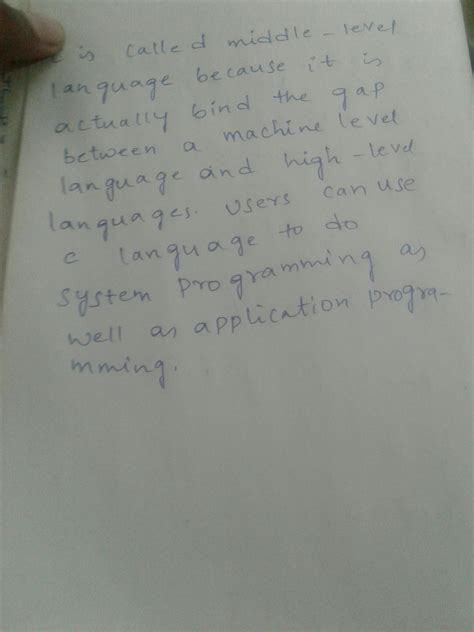 c is called middle-level
language because it is
actually bind the gap
between a machine level
language and high-level
languages. Users can use
c language to do
system programming as
well as application progra-
mming.